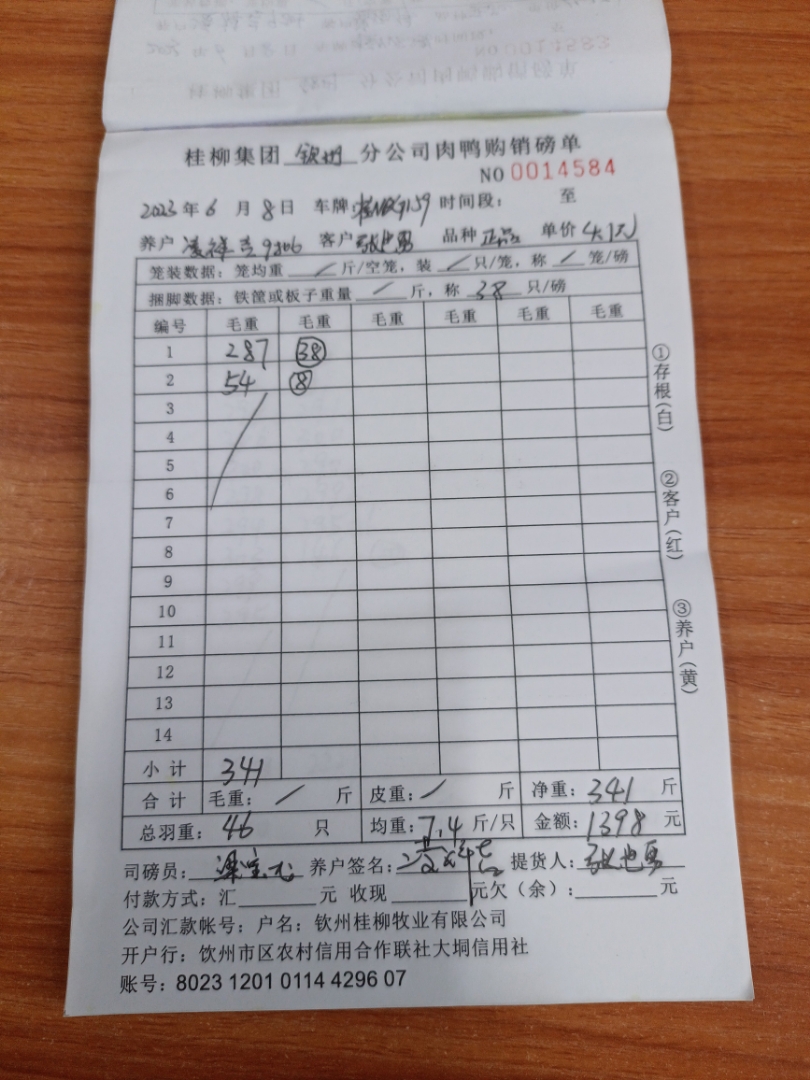 桂柳集团 钦州 分公司肉鸭购销磅单
NO 0014584
2023 年 6 月 8 日 车牌: 9159 时间段: 至
养户 凌祥 9306 客户 张 勇 品种 正品 单价 4.1元
笼装数据: 笼均重 / 斤/空笼, 装 / 只/笼, 称 / 笼/磅
捆脚数据: 铁筐或板子重量 / 斤, 称 38 只/磅
编号 毛重 毛重 毛重 毛重 毛重 毛重
1 287 38
2 54 8
3
4
5
6
7
8
9
10
11
12
13
14
小计 341
合计 毛重: / 斤 皮重: / 斤 净重: 341 斤
总羽重: 46 只 均重: 7.4 斤/只 金额: 1398 元
司磅员: 梁 养户签名: 凌祥 提货人: 张 勇
付款方式: 汇 元 收现 元欠(余): 元
公司汇款帐号: 户名: 钦州桂柳牧业有限公司
开户行: 钦州市区农村信用合作联社大垌信用社
账号: 8023 1201 0114 4296 07
①存根(白)
②客户(红)
③养户(黄)